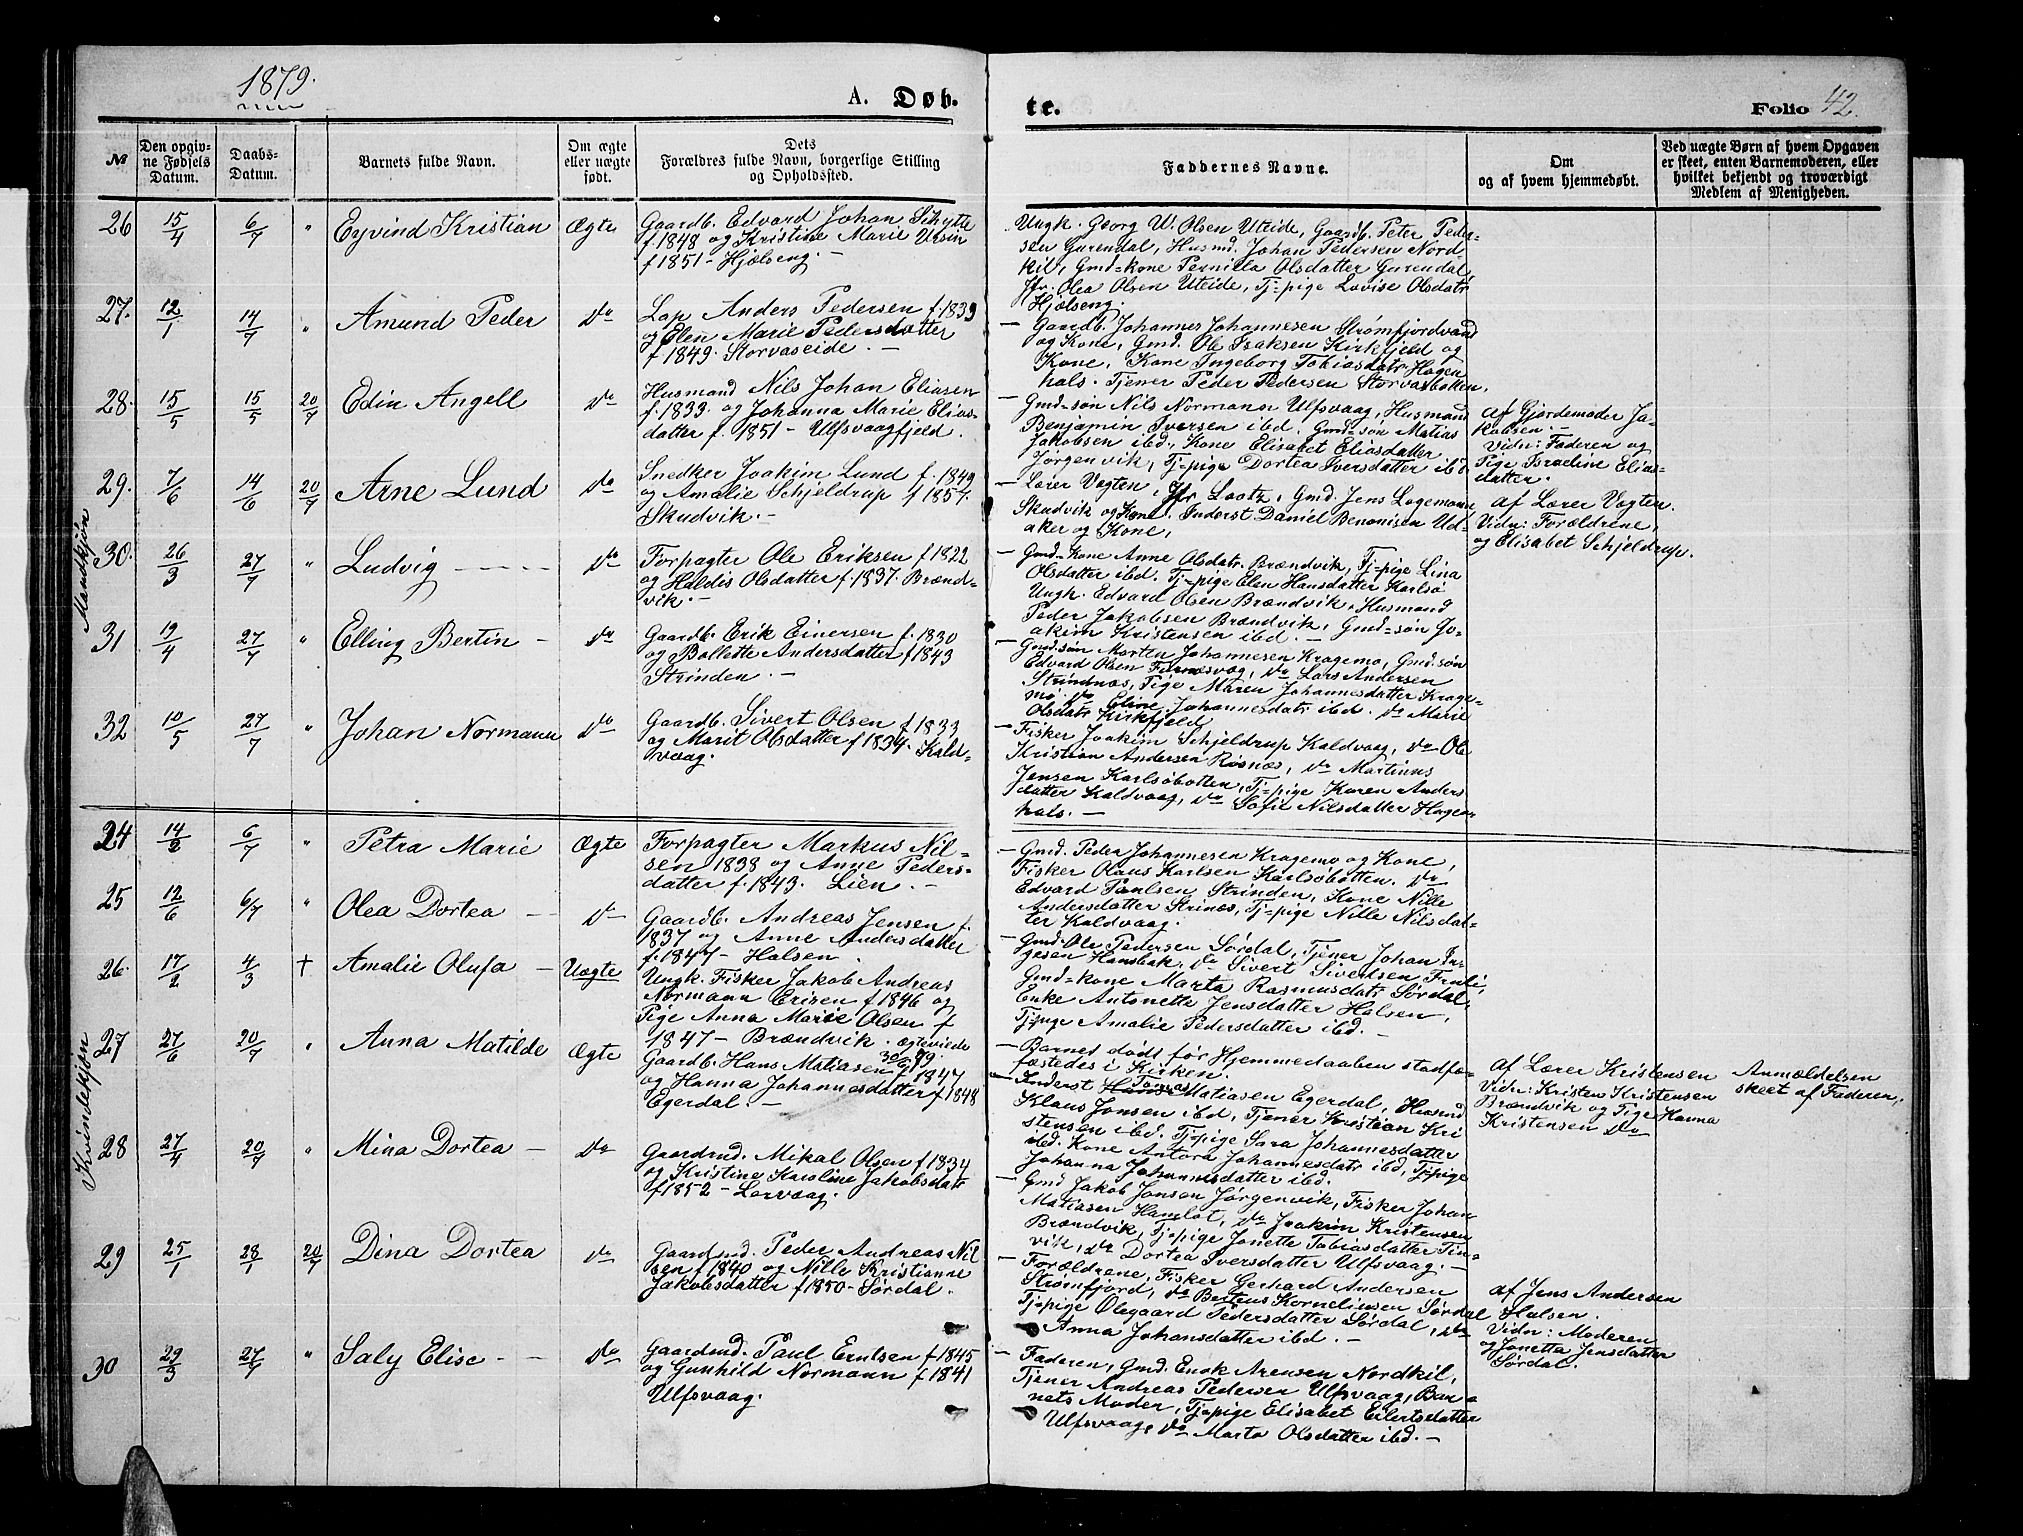 1879.
A. Døb-
te.
Folio 42.
№
Den opgiv-
ne Fødsels
Datum.
Daabs-
Datum.
Barnets fulde Navn.
Om ægte
eller uægte
født.
Dets
Forældres fulde Navn, borgerlige Stilling
og Opholdssted.
Faddernes Navne.
Om
og af hvem hjemmedøbt.
Ved uægte Børn af hvem Opgaven
er skeet, enten Barnemoderen, eller
hvilket bekjendt og troværdigt
Medlem af Menigheden.
Mandkjøn
26 15/4 6/7 " Eyvind Kristian Ægte
Gaardb. Edvard Johan Schytte
f. 1848 og Kristine Marie Ursin
f 1851 - Hjælseng. -
Ungk. Georg W. Olsen Uteide, Gaardb. Peter Peder-
sen Gurendal, Husmd. Johan Pedersen Nord-
kil, Gmd=kone Pernilla Olsdatter Gurendal,
Jfr. Olea Olsen Uteide, Tj=pige Lovise Olsdatr
Hjælseng.
27. 12/1 14/7 " Amund Peder do
Lap Anders Pedersen f. 1839
og Elen Marie Pedersdatter
f 1849. Storvaseide. -
- Gaardb. Johannes Johannesen Strømfjordvand
og Kone, Gmd. Ole Isaksen Kirkfjeld og
Kone, Kone Ingeborg Tobiasdatr Hagen
hals. Tjener Peder Pedersen Storvasbotten.
28. 15/5 15/5 20/7 Edin Angell do
Husmand Nils Johan Eliasen
f. 1833. og Johanna Marie Elias-
datter f. 1851 - Ulfsvaagfjeld.
- Gmd=søn Nils Normann Ulfsvaag, Husmand
Benjamin Iversen ibd. Gmd=søn Matias
Jakobsen ibd., Kone Elisabet Eliasdatter
Jørgenvik, Tj=pige Dortea Iversdatter ibd
af Gjordemoder Ja-
kobsen. -
Vidn: Faderen og
Pige Israeline Elias-
datter.
29. 7/6 14/6 20/7 Arne Lund do
Snedker Joakim Lund f. 1849
og Amalie Schjeldrup f 1857.
Skudvik. -
- Lærer Vogten, Jfr Lootz, Gmd. Jens Lagemann
Skudvik og Kone. Inderst Daniel Benonisen Ud-
aker og Kone,
af Lærer Vogten.
Vidn: Forældrene,
og Elisabet Schjeldrup.
30. 26/3 27/7 " Ludvig - - - - do
Forpagter Ole Eriksen f. 1822
og Haldis Olsdatter f. 1837. Brænd-
vik. -
- Gmd=Kone Anne Olsdatr. Brændvik, Tj=pige Lina
Olsdatter ibd. Tj=pige Elen Hansdatter Karlsø
Ungk. Edvard Olsen Brændvik, Husmand
Peder Jakobsen Brændvik, Gmd=søn Jo-
akim Kristensen ibd. -
31 19/4 27/7 " Elling Bertin - do
Gaardb. Erik Einersen f. 1830
og Bollette Andersdatter f 1843
Strinden. -
- Gmd.søn Morten Johannesen Kragemo, Gmd.søn
Edvard Olsen Furnæsvag, do Lars Andersen
Strindnæs, Pige Maren Johannesdatter Krage-
mo. do Eline Johannesdatr ibd. do Marie
Olsdatr Kirkfjeld
32 10/5 27/7 " Johan Normann do
Gaardb. Sivert Olsen f 1833
og Marit Olsdatter f 1834. Kald-
vaag.
- Fisker Joakim Schjeldrup Kaldvaag, do Ole
Kristian Andersen Røsnæs, do Martinus
Jensen Karlsøbotten, Tj=pige Karen Anders
datter Kaldvaag, do Sofie Nilsdatter Hagen
hals. -
Kvindekjøn
24 14/2 6/7 " Petra Marie Ægte
Forpagter Markus Nil-
sen 1838 og Anne Peders-
datter f. 1843. Lien. -
- Gmd. Peder Johannesen Kragemo og Kone,
Fisker Olaus Karlsen Karlsøbotten. do
Edvard Paulsen Strinden, Kone Nille
Andersdatter Strinæs, Tj=pige Nille Nilsdat-
ter Kaldvaag.
25 12/6 6/7 " Olea Dortea - - do
Gaardb. Andreas Jensen f.
1837 og Anne Andersdatter
f. 1847 - Halsen.
- Gmd. Ole Pedersen Sørdal, Tjener Johan In-
gesen Hansbak, do Sivert Sivertsen
Gmd=kone Marta Rasmusdatr Sørdal,
Enke Antonette Jensdatter Halsen,
Tj=pige Amalie Pedersdatter ibd. -
26. 17/2 4/3 † Amalie Olufa - Uægte
Ungk. Fisker Jakob Andreas
Normann Erisen f 1846 og
Pige Anna Marie Olsen f
1847 - Brændvik. ægteviede
30/6 79.
- Barnet dødt før Hjemmedaaben stadfæ-
fæstedes i Kirken.
af Lærer Kristensen
Vidn: Kristen Kristensen
Brændvik og Pige Hanna
Kristensen do
Anmældelsen
skeet af Faderen,
27 27/6 20/7 " Anna Matilde Ægte
Gaardb. Hans Matiasen f 1847
og Hanna Johannesdatter f 1848
Egerdal. -
- Inderst Hans Tomas Matiasen Egerdal, Husmd
Klaus Jonsen ibd, Tjener Kristian Kri
stensen ibd. Tj=pige Sara Johannesdatter
ibd. Kone Antora Johannesdatr ibd, Tj=pige
Johanna Johannesdatter ibd.
28 27/4 20/7 " Mina Dortea - do
Gaardmd. Mikal Olsen f 1834
og Kristine Karoline Jakobsdatr
f 1852 - Lervaag.
- Gmd Jakob Jonsen Jørgenvik, Fisker Johan
Matiasen Hamlot, do Joakim Kristensen
Brændvik, Tj=pige Jonette Tobiasdatter Tin-
vik, do Dortea Iversdatter Ulfsvaag. -
29 25/1 28/1 20/7 Dina Dortea do
Gaardmd. Peder Andreas Nil
sen f 1840 og Nille Kristianne
Jakobsdatter f 1850 - Sørdal.
- Forældrene, Fisker Gerhard Andersen
Strømfjord, do Berteus Kornelinsen Sørdal
Tj=pige Olegaard Pedersdatter Sørdal, do
Anna Johansdatter ibd. -
af Jens Andersen
Halsen.
Vidn: Moderen
og Jonetta Jensdatter
Sørdal.
30 29/3 27/7 " Saly Elise - - do
Gaardmd. Paul Erntsen f 1845
og Gunhild Normann f 1841
Ulfsvaag.
- Faderen, Gmd. Enok Arensen Nordkil,
Tjener Andreas Pedersen Ulfsvaag, Bar-
nets Moder, Tj=pige Elisabet Eilertsdatter
Ulfsvaag, do Marta Olsdatter ibd. -